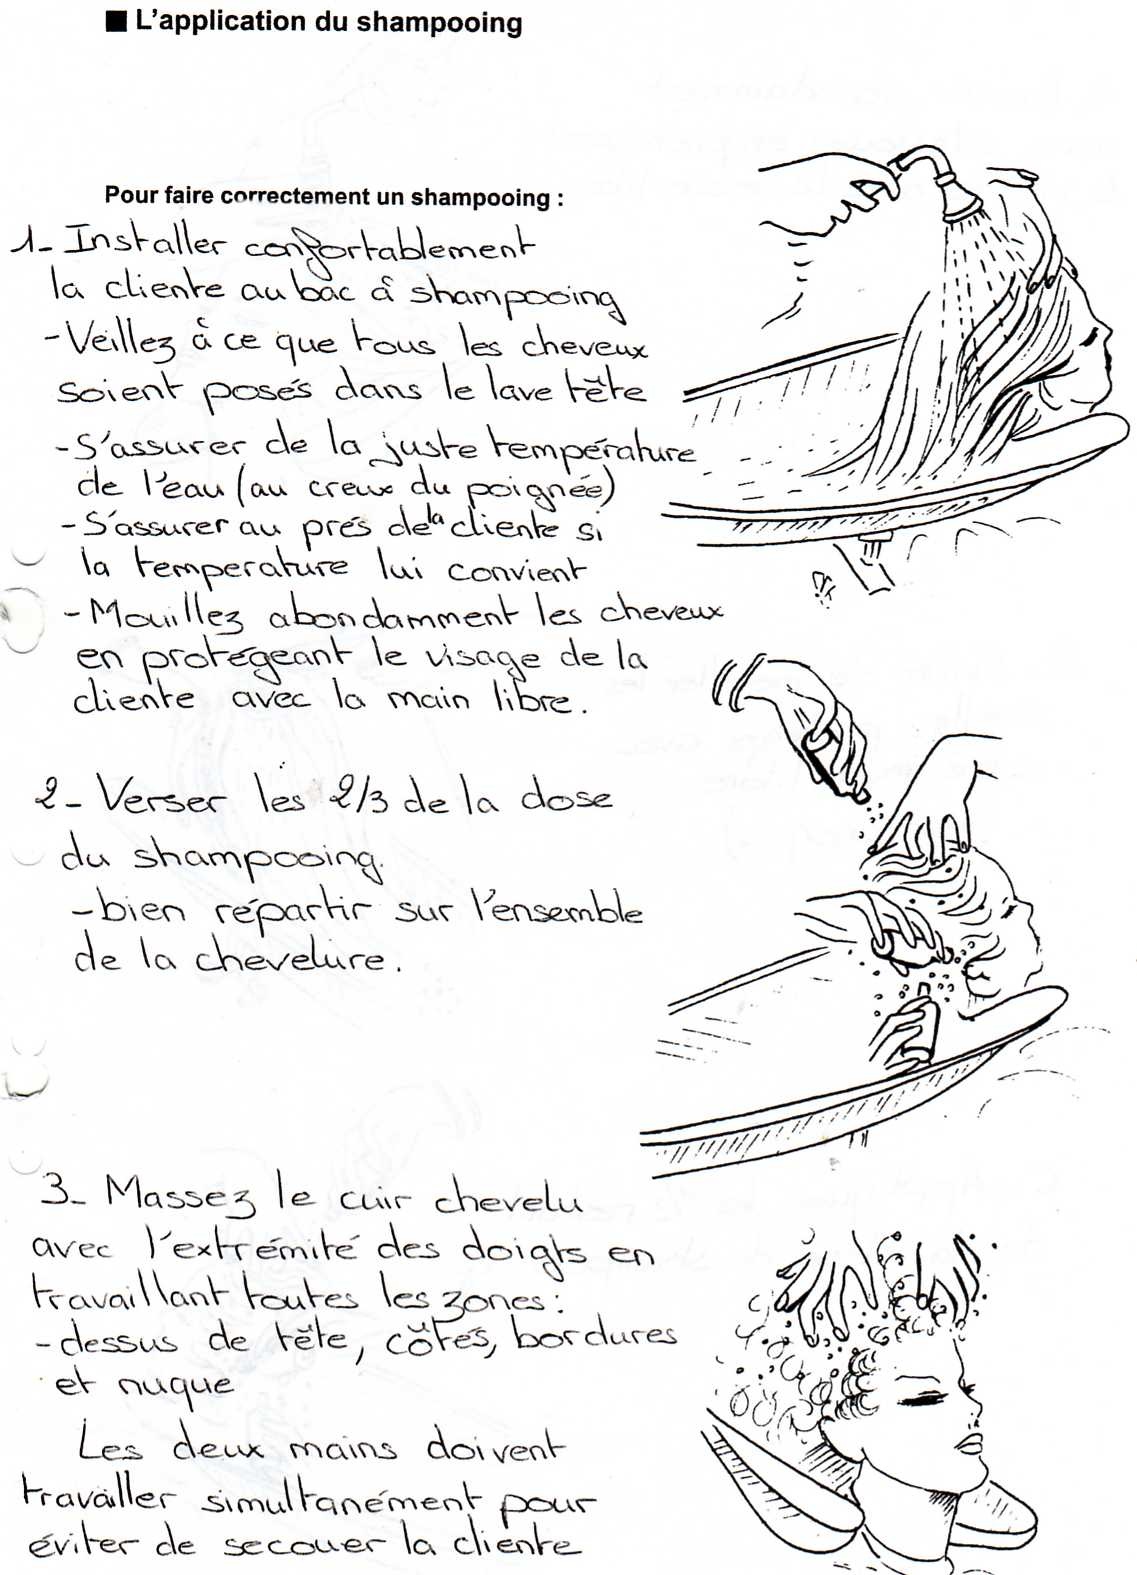 ■ L'application du shampooing
Pour faire correctement un shampooing :
1- Installer confortablement
la cliente au bac à shampooing
- Veillez à ce que tous les cheveux
soient posés dans le lave tête
- S'assurer de la juste température
de l'eau (au creux du poignée)
- S'assurer au prés de la cliente si
la temperature lui convient
- Mouillez abondamment les cheveux
en protégeant le visage de la
cliente avec la main libre.
2- Verser les 2/3 de la dose
du shampooing.
- bien répartir sur l'ensemble
de la chevelure.
3- Massez le cuir chevelu
avec l'extrémité des doigts en
travaillant toutes les zones :
- dessus de tête, côtés, bordures
et nuque
Les deux mains doivent
travailler simultanément pour
éviter de secouer la cliente